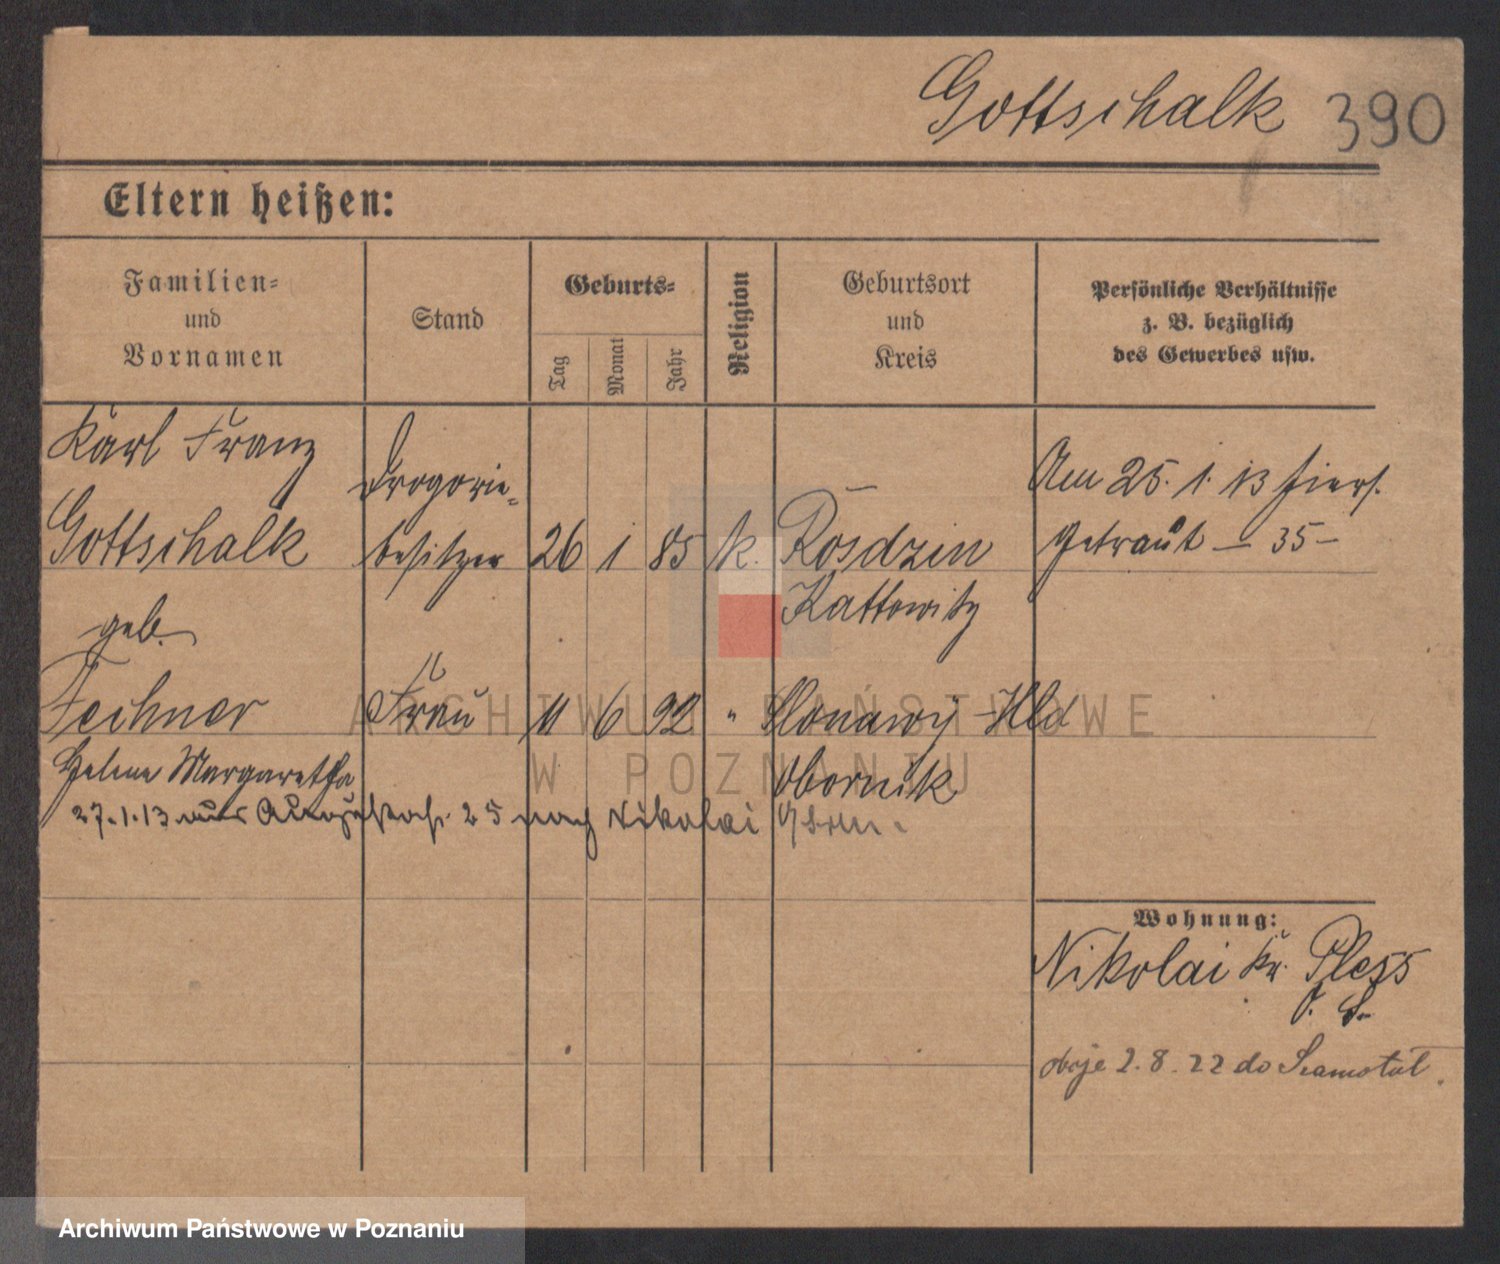 Gottschalk 390
Eltern heißen:
Familien=
und
Vornamen
Stand
Geburts=
Tag
Monat
Jahr
Religion
Geburtsort
und
Kreis
Persönliche Verhältnisse
z. B. bezüglich
des Gewerbes usw.
Karl Franz
Gottschalk
Drogerie=
besitzer
26 1 85 k. Rosdzin
Kattowitz
Am 25. 1. 13 hiers.
getraut — 35 —
geb.
Fechner Frau 11 6 92 " Slonawy Hld
Helene Margaretha
Obornik
27.1.13 aus 25 nach Nikolai
Wohnung:
Nikolai Kr. Pless
O. S.
oboje 2.8.22 do Szamotuł
ARCHIWUM PAŃSTWOWE
W POZNANIU
Archiwum Państwowe w Poznaniu